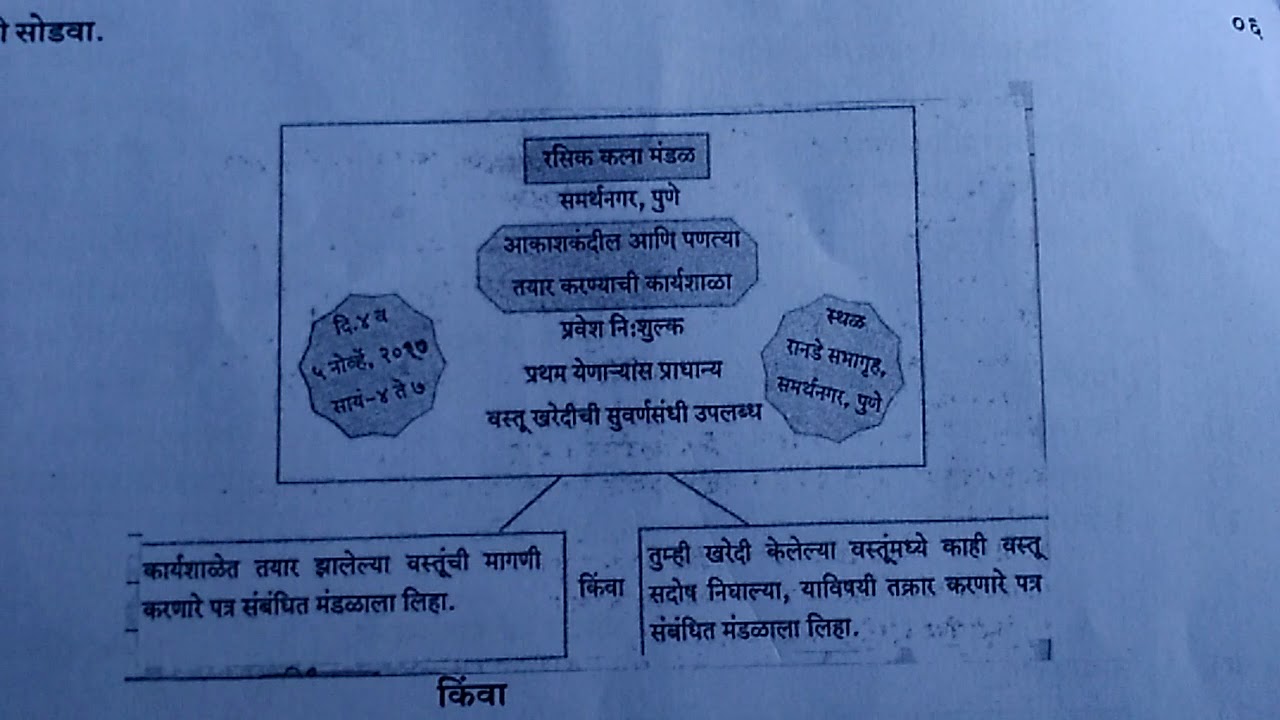 सोडवा.
०६
रसिक कला मंडळ
समर्थनगर, पुणे
आकाशकंदील आणि पणत्या
तयार करण्याची कार्यशाळा
प्रवेश नि:शुल्क
प्रथम येणाऱ्यांस प्राधान्य
वस्तू खरेदीची सुवर्णसंधी उपलब्ध
दि.४ व
५ नोव्हें, २०१७
सायं-४ ते ७
स्थळ
रानडे सभागृह,
समर्थनगर, पुणे
कार्यशाळेत तयार झालेल्या वस्तूंची मागणी
करणारे पत्र संबंधित मंडळाला लिहा.
किंवा
तुम्ही खरेदी केलेल्या वस्तूंमध्ये काही वस्तू
सदोष निघाल्या, याविषयी तक्रार करणारे पत्र
संबंधित मंडळाला लिहा.
किंवा